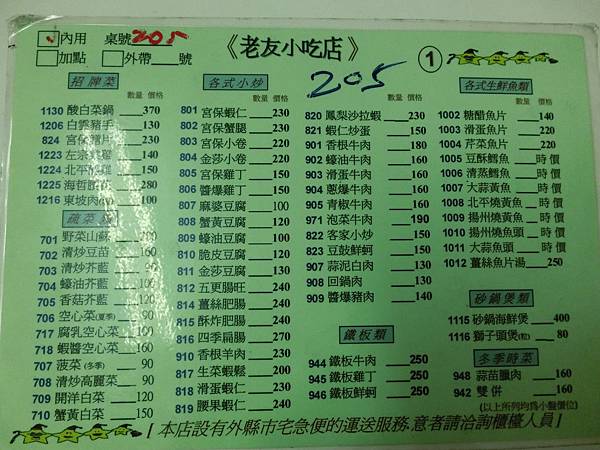 內用 桌號 205
加點 外帶 號
《老友小吃店》
1
205
招牌菜
數量 價格
1130 酸白菜鍋 370
1206 白雲豬手 130
824 宮保 片 230
1223 左宗 雞 140
1224 北平 雞 150
1225 海哲 280
1216 東坡肉 100
蔬菜類
701 野菜山蘇
702 清炒豆苗 160
703 清炒芥藍 90
704 蠔油芥藍 100
705 香菇芥藍 120
706 空心菜(夏季) 90
717 腐乳空心菜
718 蝦醬空心菜 160
707 菠菜(冬季) 90
708 清炒高麗菜 90
709 開洋白菜 120
710 蟹黃白菜 150
各式小炒
數量 價格
801 宮保蝦仁 230
802 宮保蟹腿 230
803 宮保小卷 220
804 金莎小卷 220
805 宮保雞丁 150
806 醬爆雞丁 150
807 麻婆豆腐 100
808 蟹黃豆腐 120
809 蠔油豆腐 100
810 脆皮豆腐 120
811 金莎豆腐 130
812 五更腸旺 240
814 薑絲肥腸 240
815 酥炸肥腸 240
816 四季扁腸 270
910 香根羊肉 230
817 生菜蝦鬆 200
818 滑蛋蝦仁 230
819 腰果蝦仁 240
數量 價格
820 鳳梨沙拉蝦 230
821 蝦仁炒蛋 150
901 香根牛肉 180
902 蠔油牛肉 160
903 滑蛋牛肉 160
904 蔥爆牛肉 160
905 青椒牛肉 160
971 泡菜牛肉 190
822 客家小炒 150
823 豆鼓鮮蚵 150
907 蒜泥白肉 130
908 回鍋肉 130
909 醬爆豬肉 140
鐵板類
944 鐵板牛肉 250
945 鐵板雞丁 250
946 鐵板鮮蚵 250
各式生鮮魚類
數量 價格
1002 糖醋魚片 140
1003 滑蛋魚片 220
1004 芹菜魚片 220
1005 豆酥鱈魚 時價
1006 清蒸鱈魚 時價
1007 大蒜黃魚 時價
1008 北平燒黃魚 時價
1009 揚州燒黃魚 時價
1010 揚州燒魚頭 時價
1011 大蒜魚頭 時價
1012 薑絲魚片湯 250
砂鍋煲類
1115 砂鍋海鮮煲 400
1116 獅子頭煲(粒) 80
冬季時菜
948 蒜苗臘肉 160
942 雙併 160
(以上所列均為小盤價位)
[本店設有外縣市宅急便的運送服務,意者請洽詢櫃檯人員]